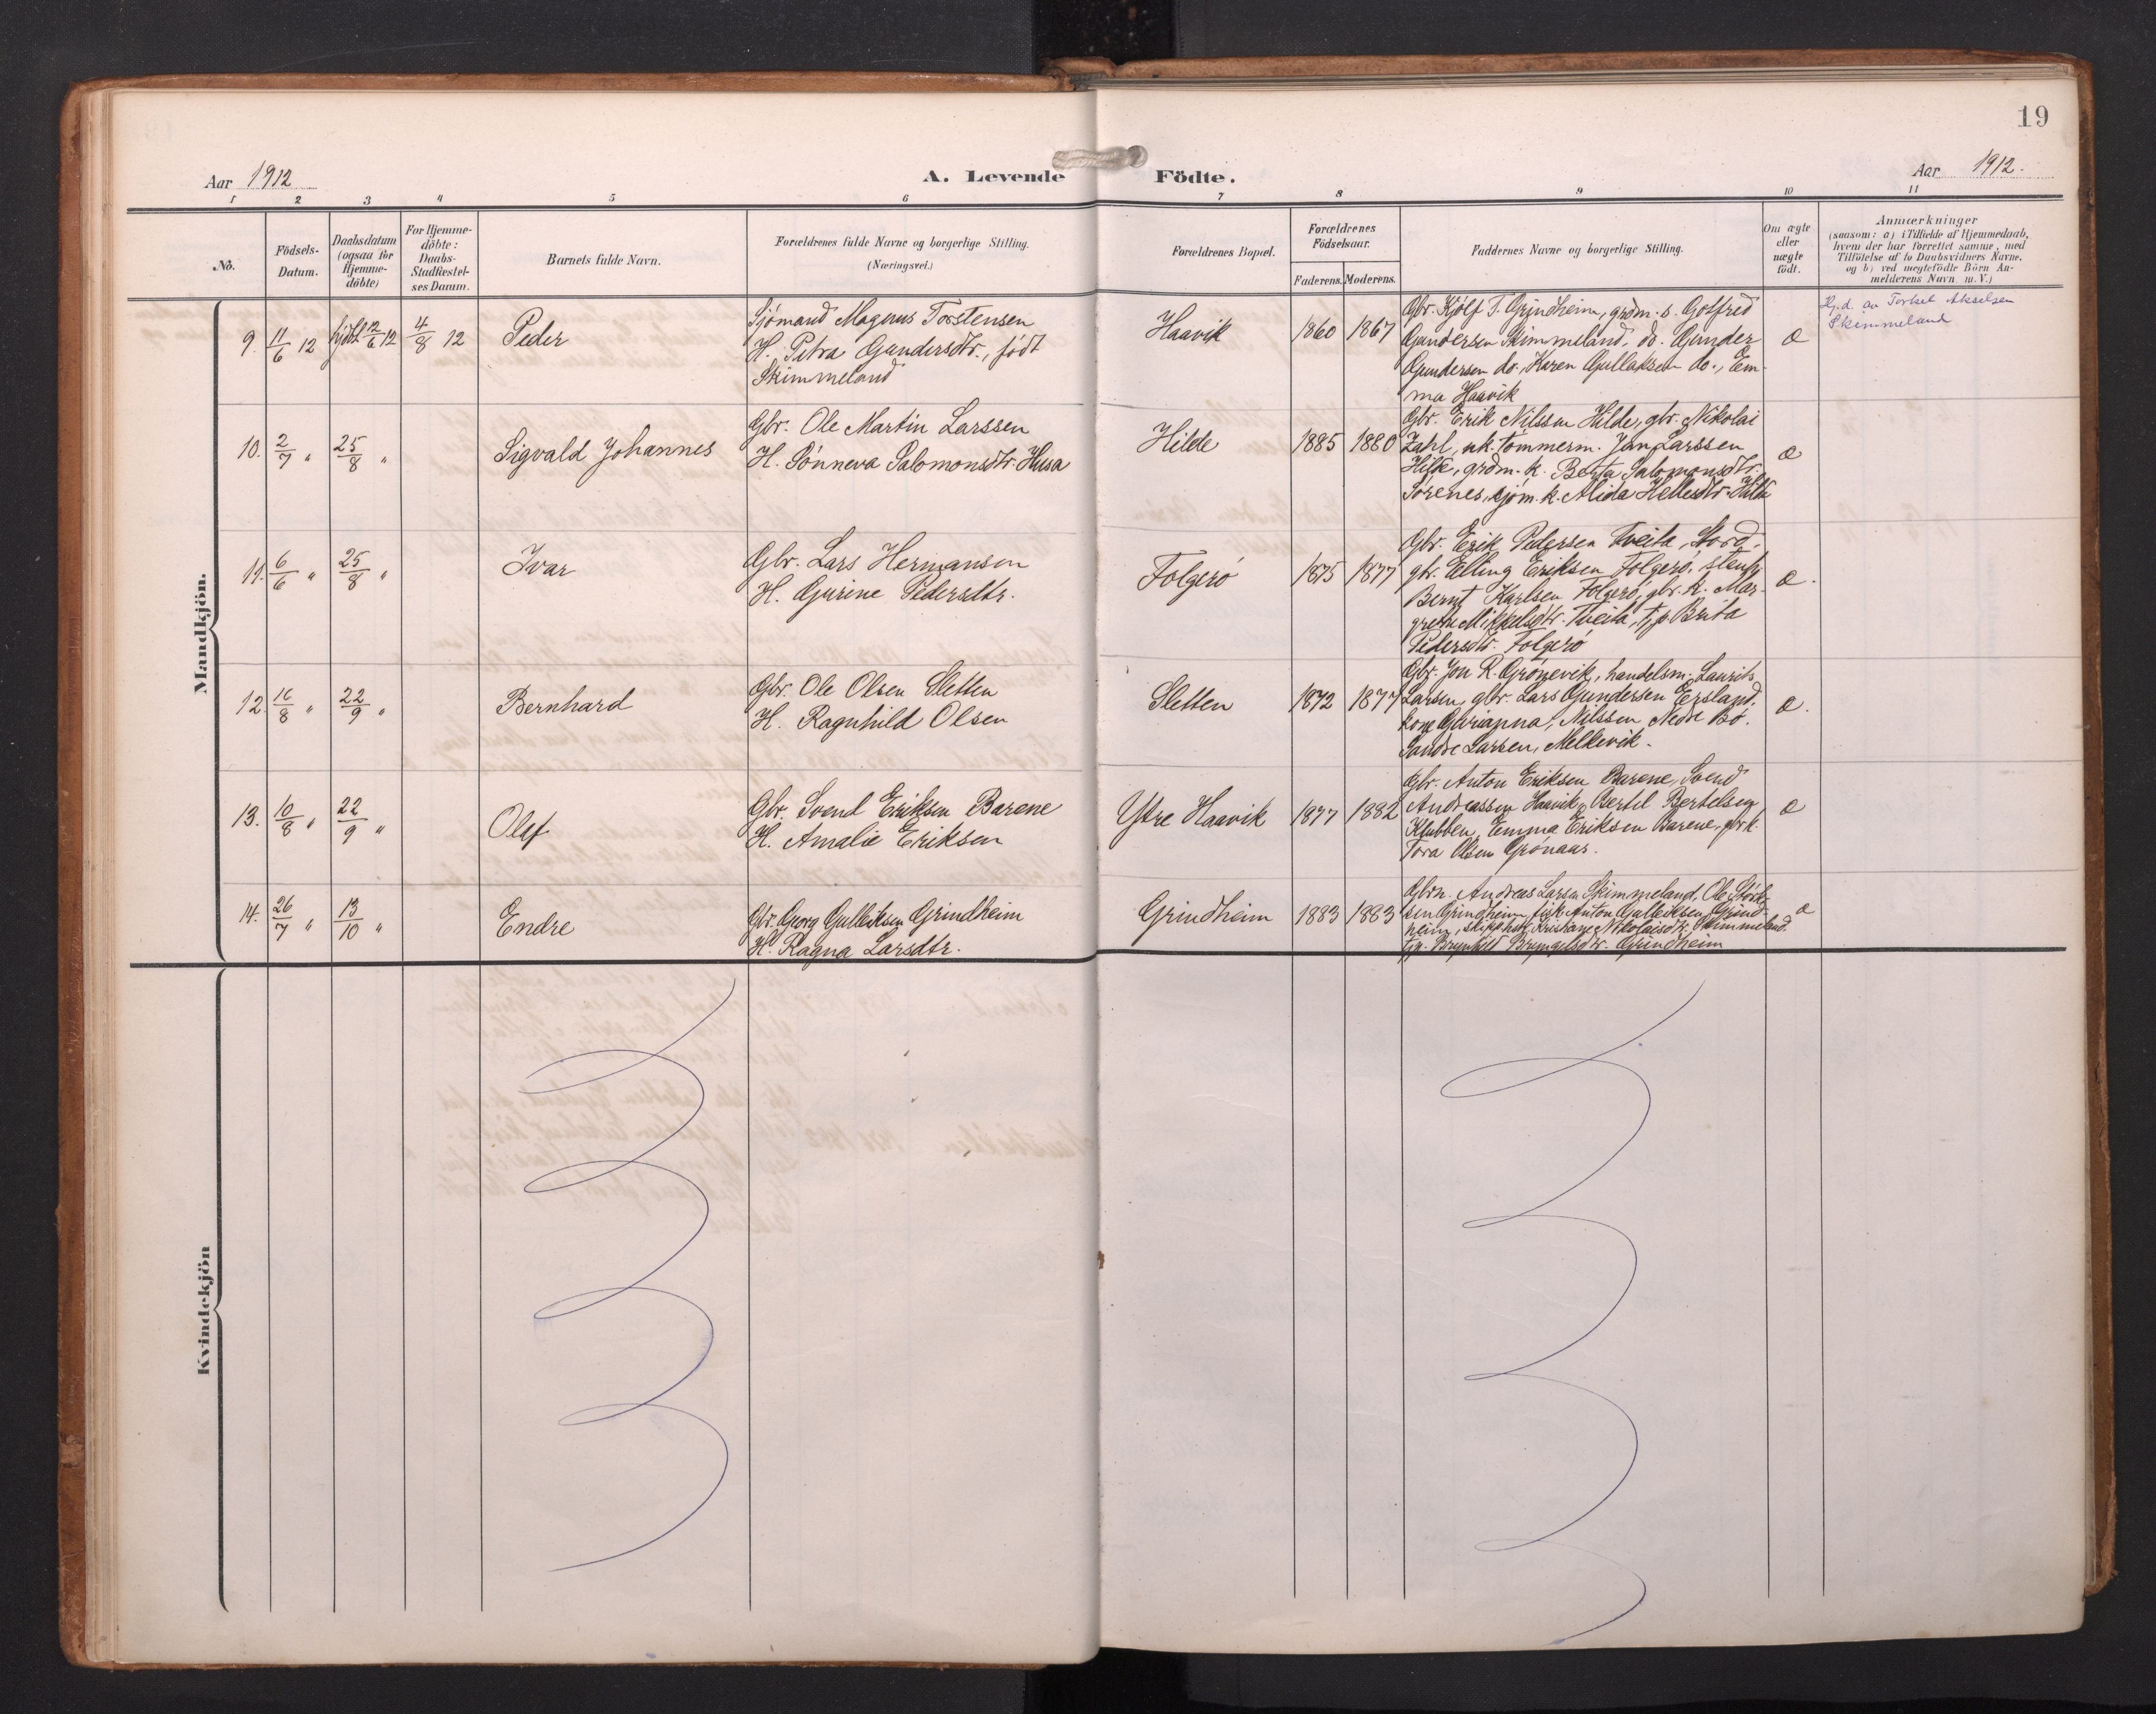 19
Aar 1912
A. Levende Födte.
Aar 1912.
1 2 3 4 5 6 7 8 9 10 11
No.
Födsels-
Datum.
Daabsdatum
(ogsaa for
Hjemme-
döbte)
For Hjemme-
döbte:
Daabs-
Stadfæstel-
ses Datum.
Barnets fulde Navn.
Forældrenes fulde Navne og borgerlige Stilling.
(Næringsvei.)
Forældrenes Bopæl.
Forældrenes
Födselsaar.
Faderens. Moderens.
Faddernes Navne og borgerlige Stilling.
Om ægte
eller
uægte
födt.
Anmærkninger
(saasom: a) i Tilfælde af Hjemmedaab,
hvem der har forrettet samme, med
Tilföielse af to Daabsvidners Navne.
og b) ved uægtefödte Börn An-
melderens Navn m.V.)
Mandkjön.
9. 11/6 12 hjdbt 12/6 12 4/8 12
Peder
Sjømand Magnus Torstensen
H. Petra Gundersdtr., født
Skimmeland
Haavik
1860 1867
Gbr. Kjølf T. Grindheim, grdm. s. Gotfred
Gundersen Skimmeland, do. Gunder
Gundersen do., Karen Gullaksen do., Em-
ma Haavik
æ
Hj.d. av Torkel Akselsen
Skimmeland
10. 2/7 25/8 "
Sigvald Johannes
Gbr. Ole Martin Larssen
H. Sønneva Salomonsdtr. Husa
Hilde
1885 1880
Gbr. Erik Nilssen Hilde, gbr. Nikolai
Zahl, uk. tømmerm. Jan Larssen
Hilde, grdm. k. Berta Salomonsdtr.
Sørenes, sjøm. k. Alida Hellesdtr. Hilde
æ
11. 6/6 " 25/8 "
Ivar
Gbr. Lars Hermansen
H. Gurine Pedersdtr.
Folgerø
1875 1877
Gbr. Erik Pedersen Tveita, Stord,
gbr. Elling Eriksen Folgerø,
Bernt Karlsen Folgerø, gbr. k. Mar-
grethe Mikkelsdtr. Tveita, tjp Brita
Pedersdtr. Folgerø
æ.
12. 16/8 " 22/9 "
Bernhard
Gbr. Ole Olsen Sletten
H. Ragnhild Olsen
Sletten
1872 1877
Gbr. Jon R. Grønevik, handelsm. Laurits
Larsen, gbr. Lars Gundersen Ersland,
kone Nilssen, Nedre Bø.
Larsen, Melkevik.
æ.
13. 10/8 " 22/9 "
Olaf
Gbr. Svend Eriksen Barene
H. Amalie Eriksen
Ytre Haavik
1877 1882
Gbr. Anton Eriksen Barene, Svend
Andreassen Haavik, Bertel Bertelsen
Klubben, Emma Eriksen Barene, gbr. k.
Tora Olsen Grønaas.
æ
14. 26/7 " 13/10 "
Endre
Gbr. Georg Gulleiksen Grindheim
H. Ragna Larsdtr.
Grindheim
1883 1883
Gbrn. Andreas Larsen Skimmeland, Ole
Grindheim, fisk. Anton Gulleiksen Grind-
heim, Kristiane Nikolaisdtr. Skimmeland.
tjp. Brynhild Bryngelsdtr. Grindheim
æ
Kvindekjön